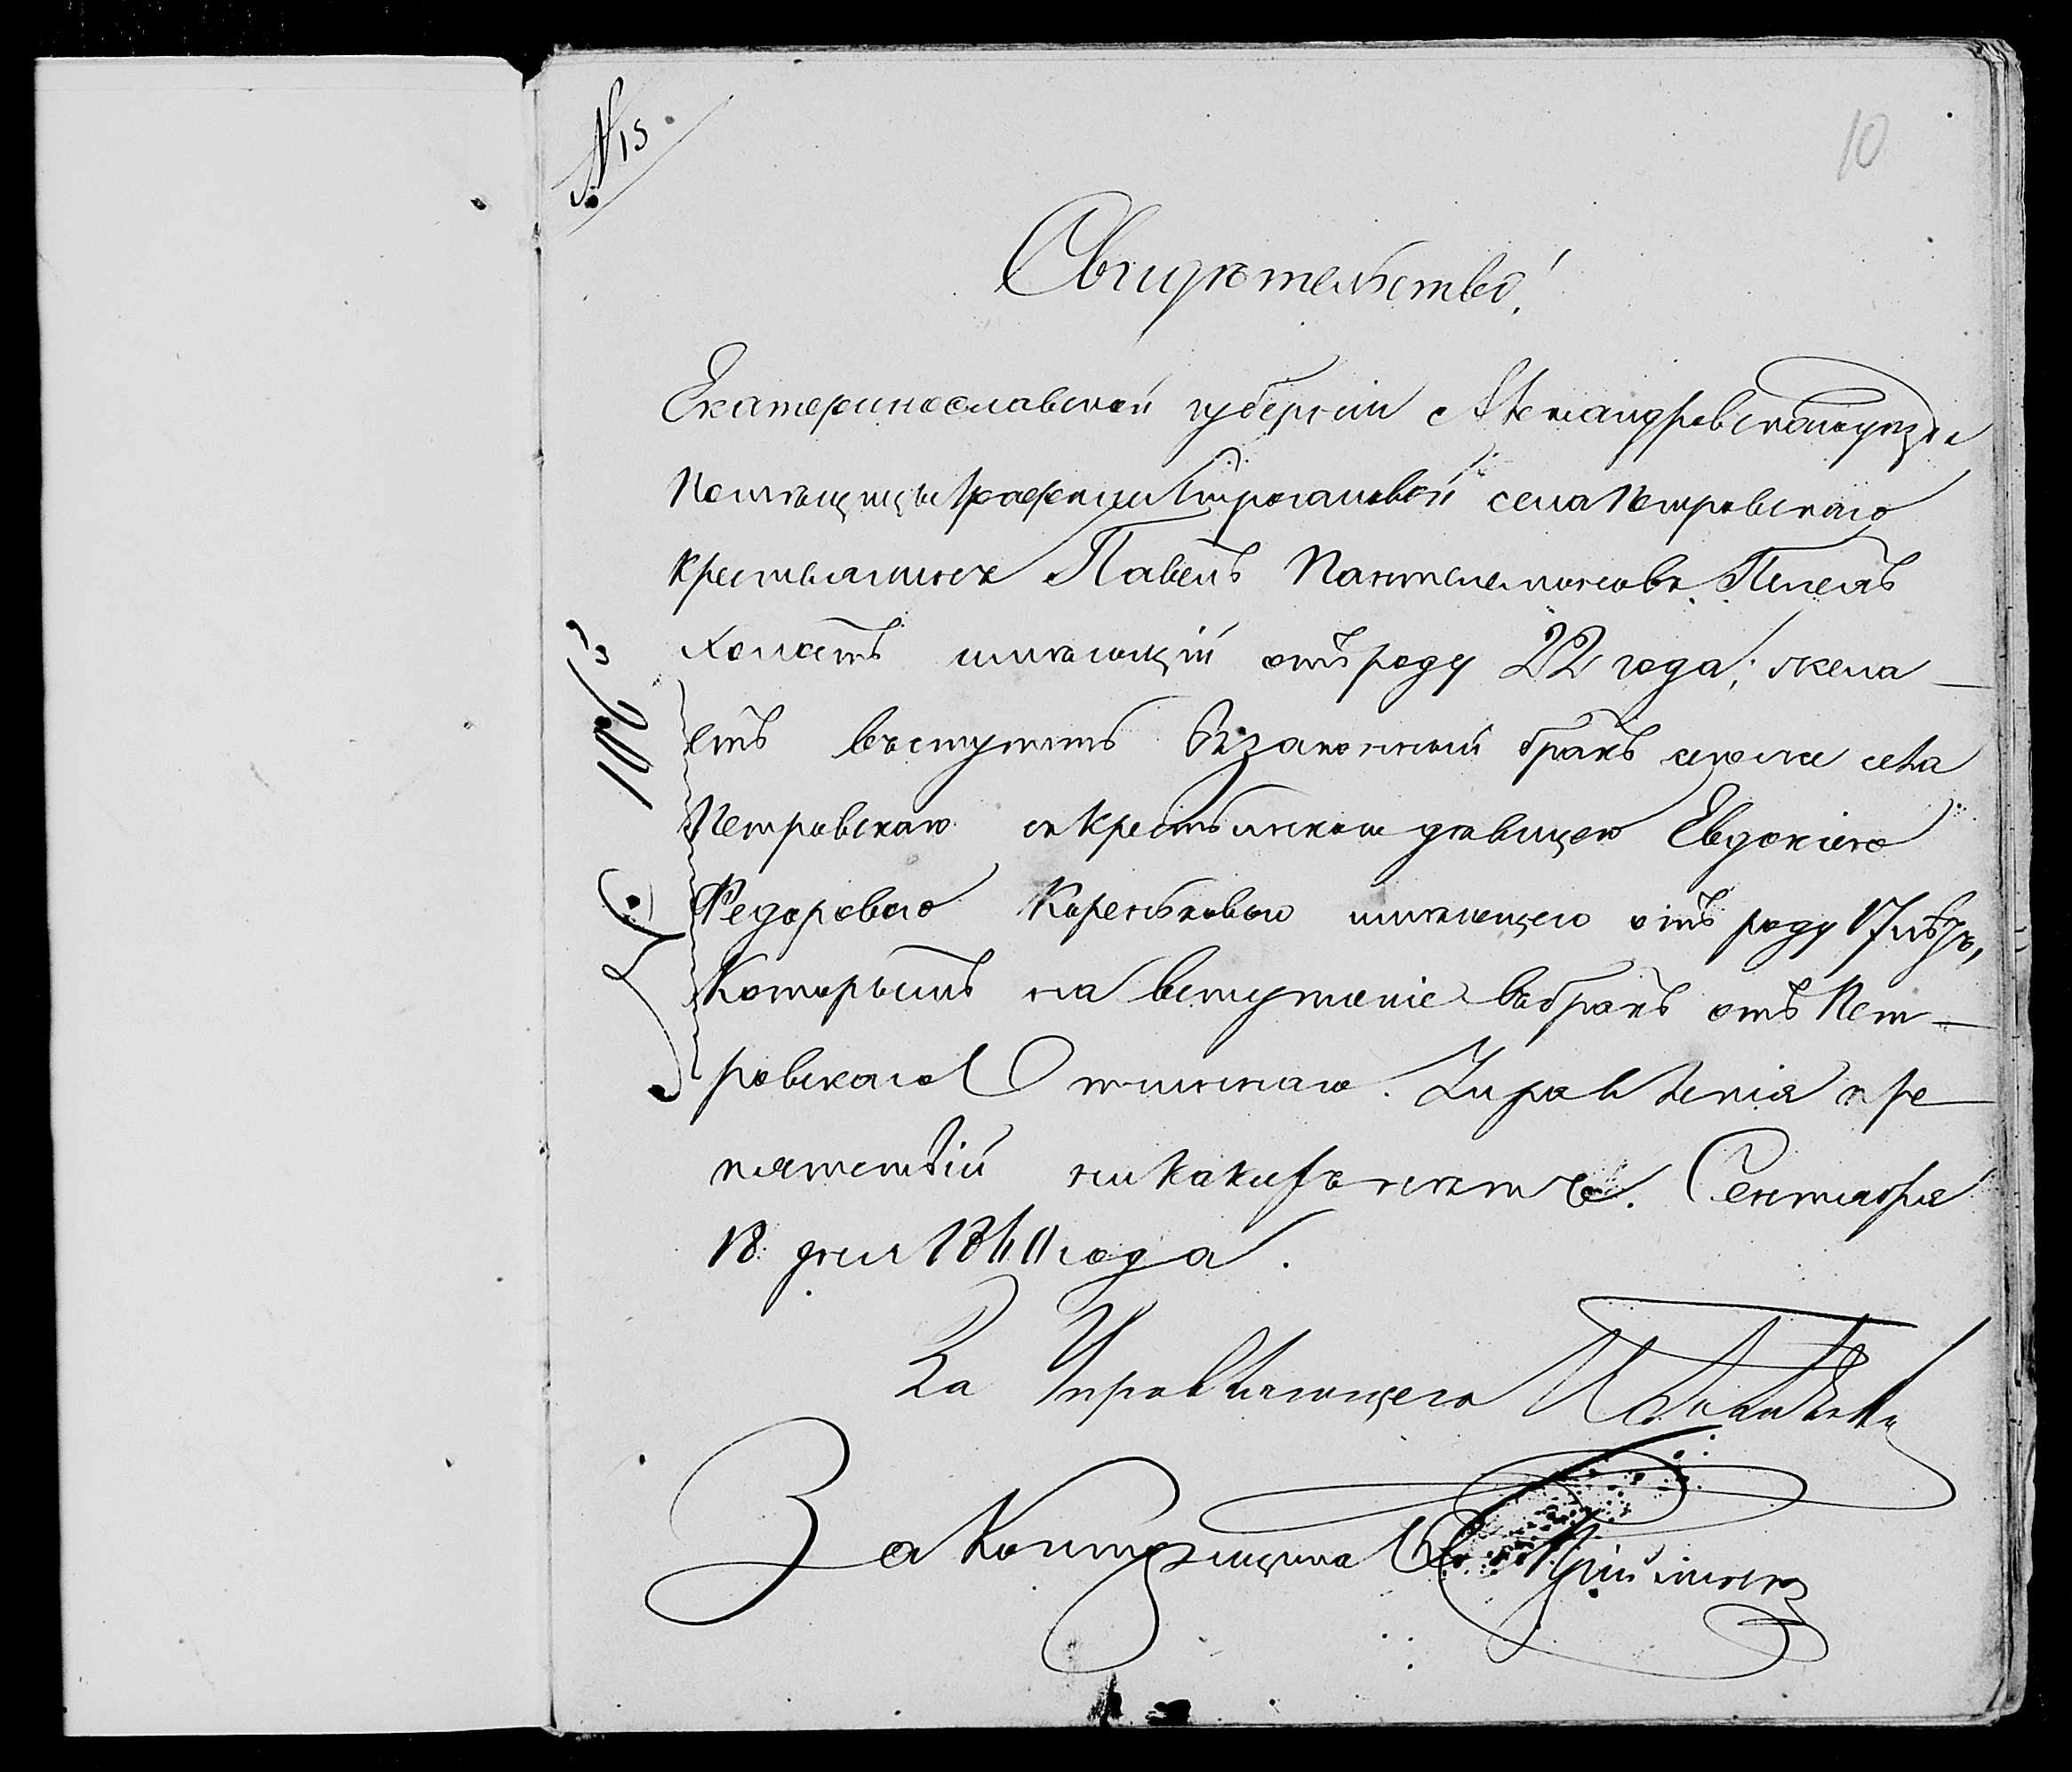 № 15
10
Свидѣтельство!
Екатеринославской губерніи Александровскаго уѣзда
Помѣщицы Графини Строгановой села Петровскаго
крестьянинъ Павелъ Пантелемоновъ
холостъ имѣющій отъ роду 22 года, жела-
етъ вступить въ законный бракъ села
Петровскаго съ крестьянскою дѣвицею Евдокіею
Федоровою Кореньковою имѣющею отъ роду 17 лѣтъ,
Которымъ на вступленіе въ бракъ отъ Пет-
ровскаго Вотчиннаго Управленія пре-
пятствій никакихъ нѣтъ. Сентября
18 дня года.
За Управляющего
За Конторщика